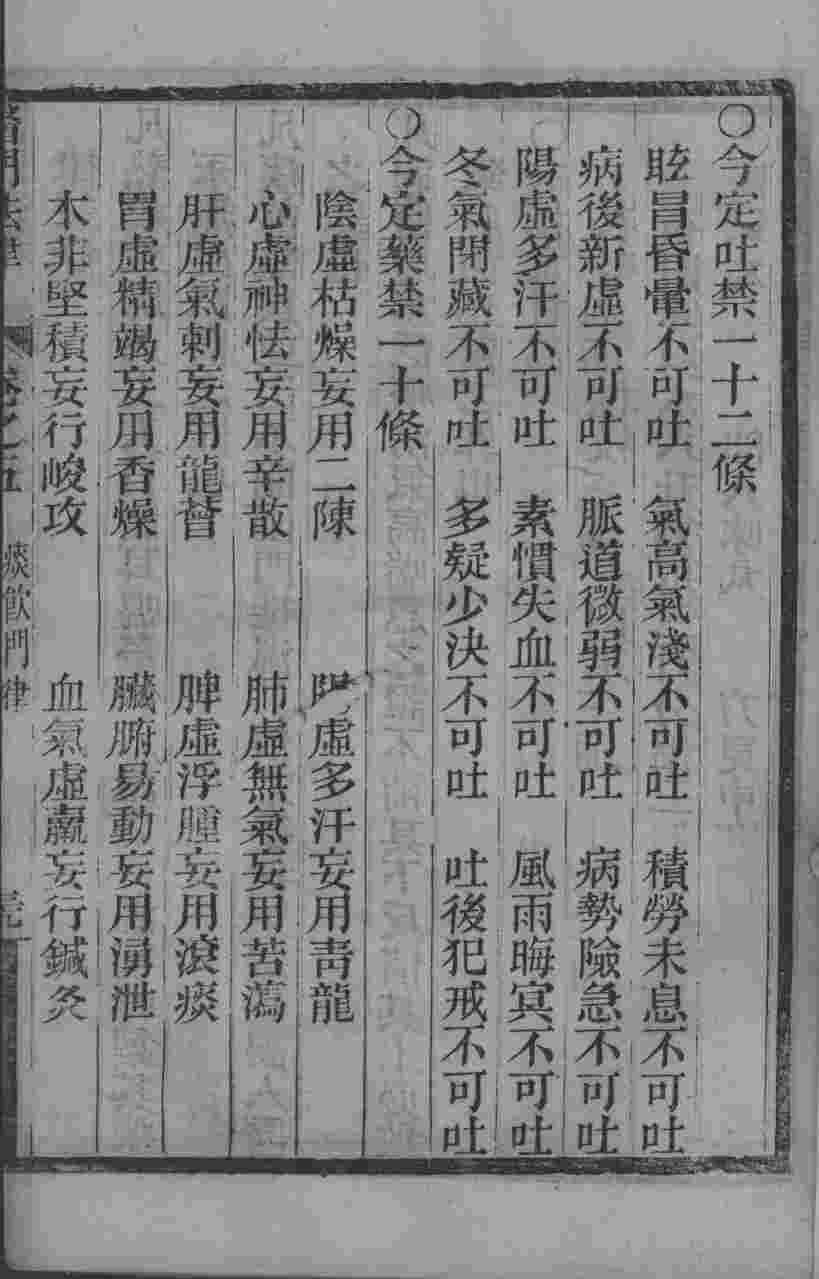 ○今定吐禁一十二條
眩冒昏暈不可吐　氣高氣淺不可吐　積勞未息不可吐
病後新虛不可吐　脈道微弱不可吐　病勢險急不可吐
陽虛多汗不可吐　素慣失血不可吐　風雨晦冥不可吐
冬氣閉藏不可吐　多疑少決不可吐　吐後犯戒不可吐
○今定藥禁一十條
陰虛枯燥妄用二陳　陽虛多汗妄用青龍
心虛神怯妄用辛散　肺虛無氣妄用苦瀉
肝虛氣刺妄用龍薈　脾虛浮腫妄用滾痰
胃虛精竭妄用香燥　臟腑易動妄用湧泄
本非堅積妄行峻攻　血氣虛羸妄行鍼灸
醫門法律　卷之五　痰飲門律